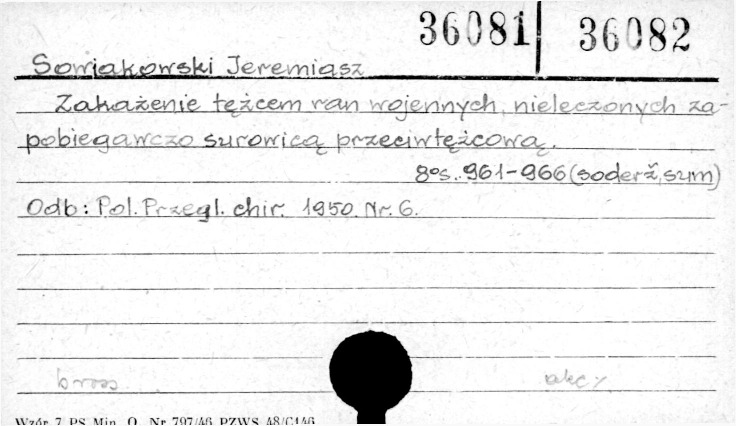 36081 36082
Sowiakowski Jeremiasz
Zakażenie tężcem ran wojennych, nieleczonych za-
pobiegawczo surowicą przeciwtężcową.
8° s. 961-966 (soderž, sum)
Odb: Pol. Przegl. chir. 1950 Nr. 6.
brosz
Wzór 7 PS Min. O. Nr 797/46 PZWS 48/G146